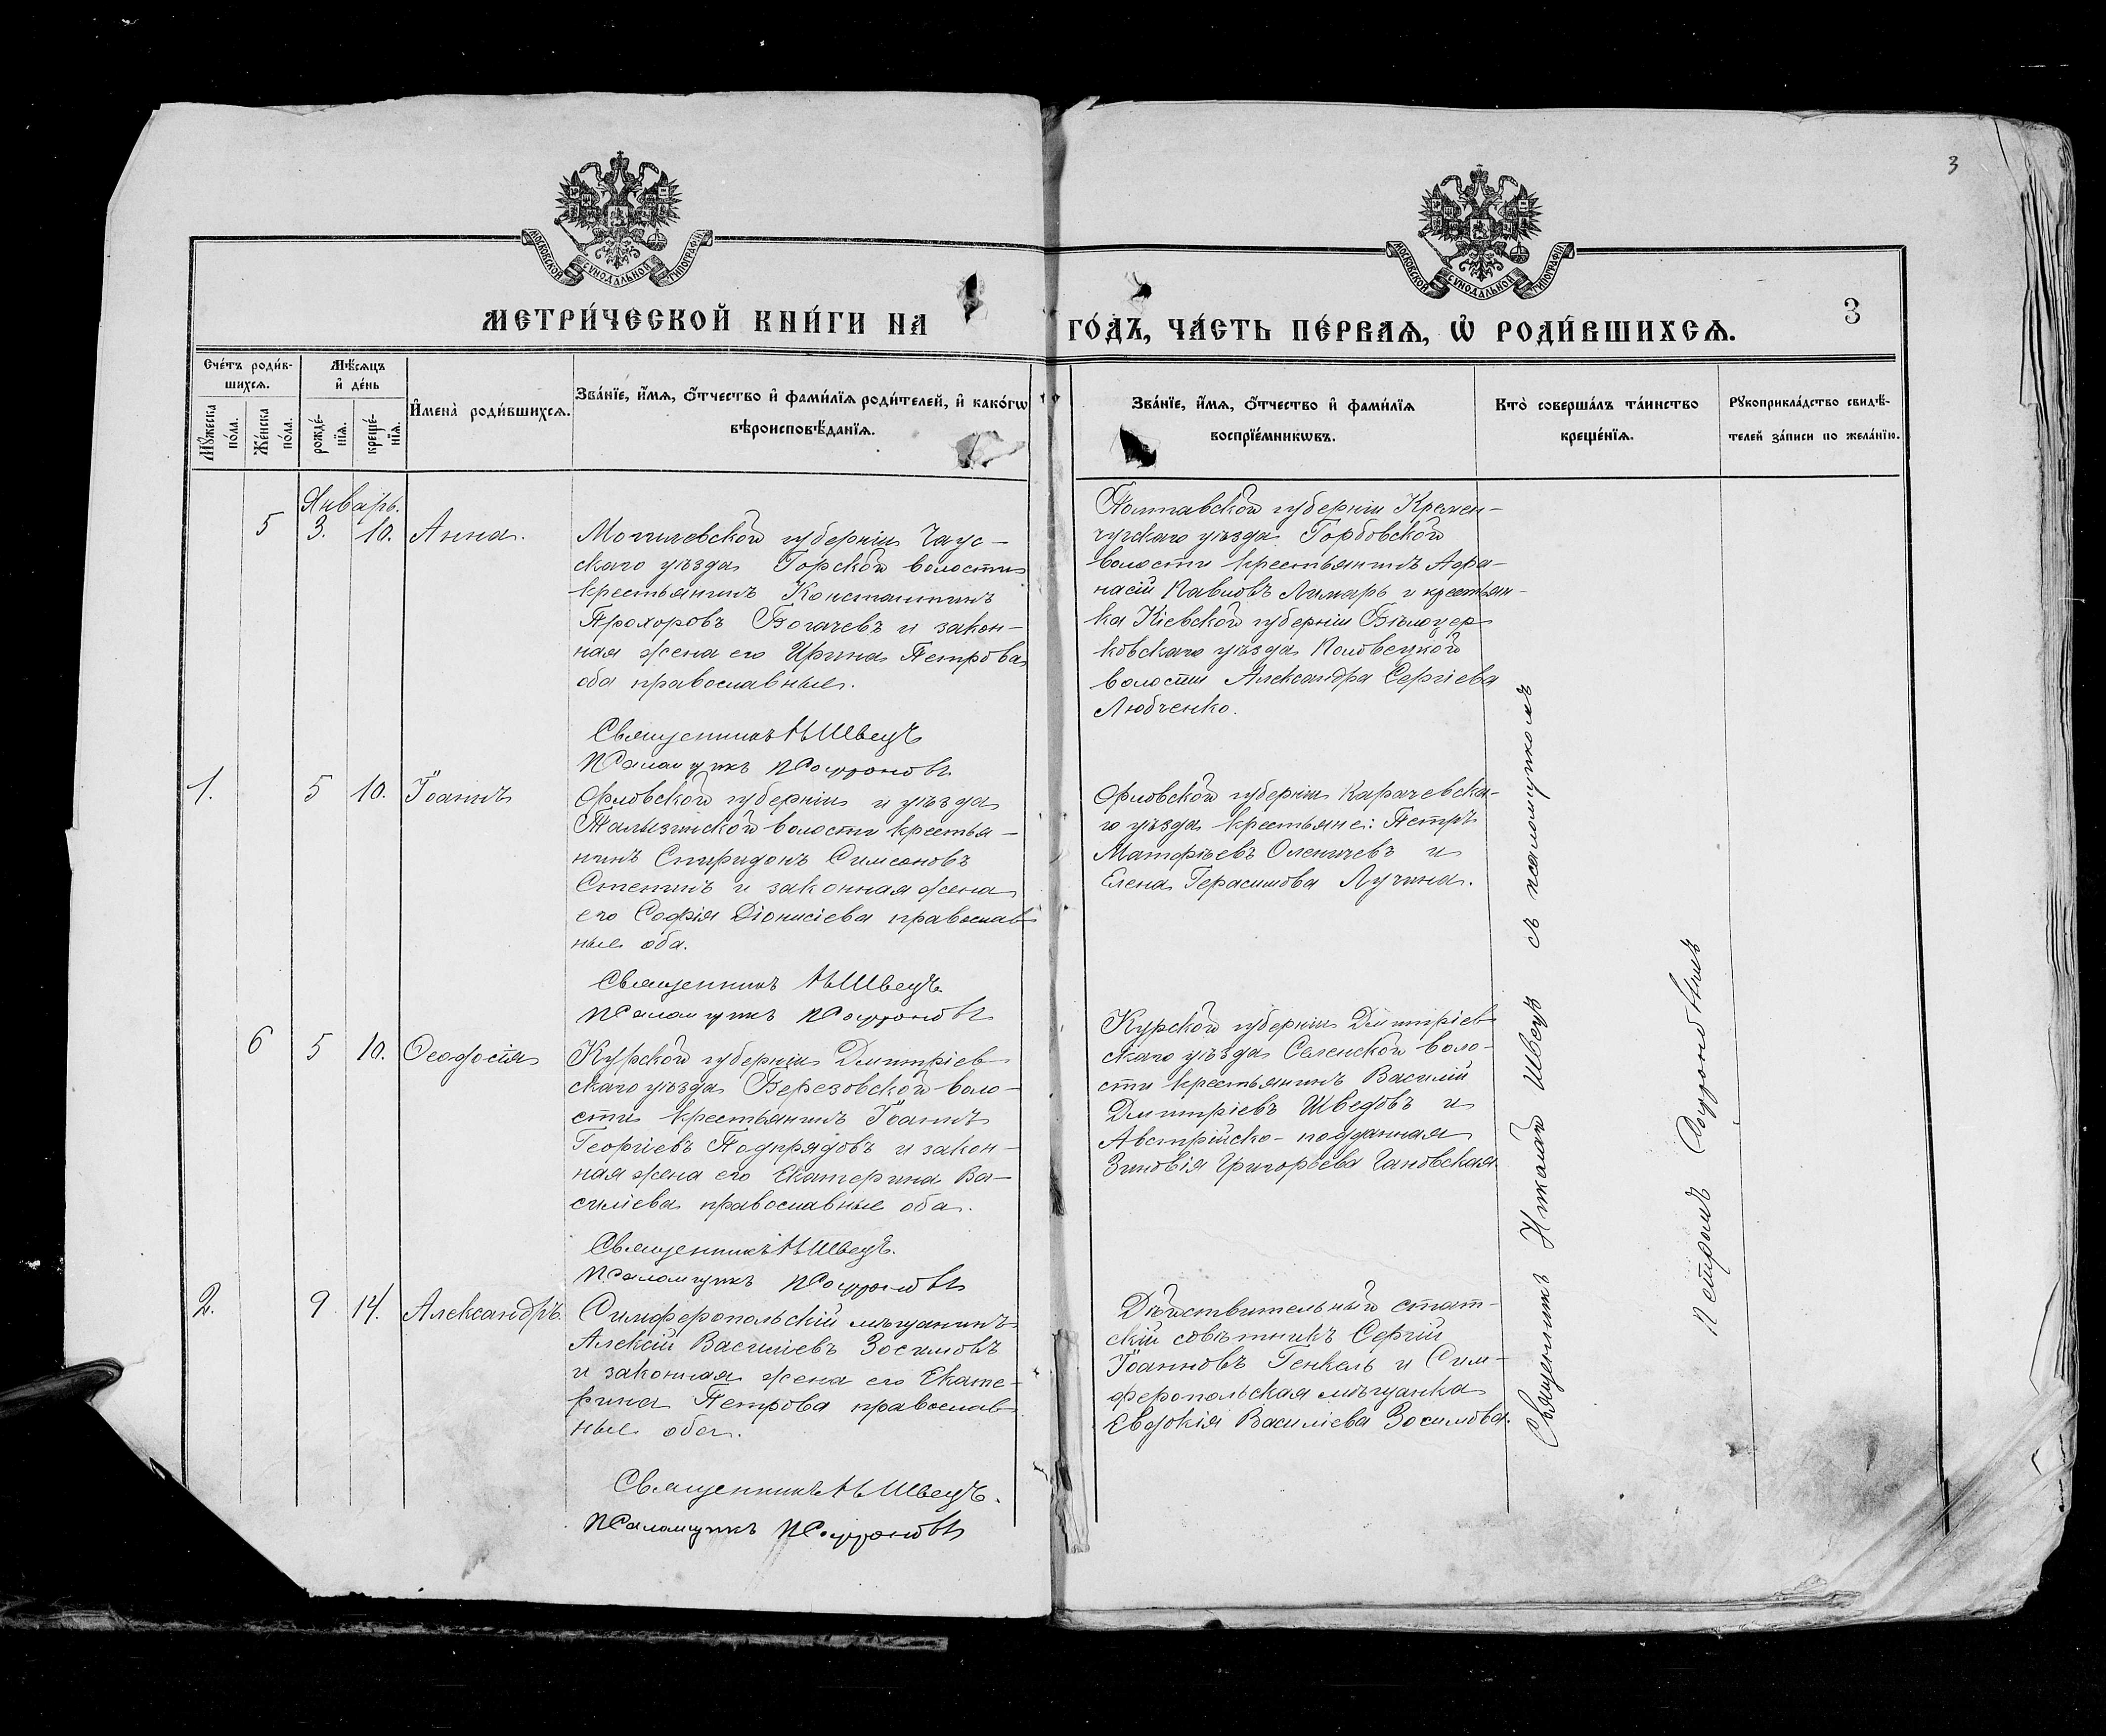 3
МОСКОВСКОЙ СѴНОДАЛЬНОЙ ТИПОГРАФІИ
МОСКОВСКОЙ СѴНОДАЛЬНОЙ ТИПОГРАФІИ
МЕТРИ́ЧЕСКОЙ КНИ́ГИ НА ГО́ДЪ, ЧА́СТЬ ПЕ́РВАѦ, Ѡ҆ РОДИ́ВШИХСѦ.
3
Сче́тъ роди́в-
шихсѧ.
Мꙋ́жеска
по́ла.
Же́нска
по́ла.
Мѣ́сѧцъ
и҆ де́нь
рожде́-
нїѧ.
креще́-
нїѧ.
И҆мена̀ роди́вшихсѧ.
Зва́нїе, и҆́мѧ, ѻ҆́тчество и҆ фами́лїѧ роди́телей, и҆ како́гѡ
вѣроисповѣ́данїѧ.
Зва́нїе, и҆́мѧ, ѻ҆́тчество и҆ фами́лїѧ
воспрїе́мникѡвъ.
Кто̀ соверша́лъ та́инство
креще́нїѧ.
Рꙋкоприкла́дство свидѣ́-
телей за́писи по жела́нїю.
Январь.
5 3. 10. Анна.
Могилевской губерніи Чаус-
скаго уѣзда Горской волости
крестьянинъ Константинъ
Прохоровъ Богачевъ и закон-
ная жена его Ирина Петрова
оба православные.
Священникъ Н Швецъ
Псаломщикъ П Софроновъ
Полтавской губерніи Кремен-
чугскаго уѣзда Горбовской
волости крестьянинъ Афа-
насій Павловъ Лимарь и крестьян-
ка Кіевской губерніи Бѣлоцер-
ковскаго уѣзда Половецкой
волости Александра Сергіева
Любченко.
1. 5 10. Іоаннъ
Орловской губерніи и уѣзда
волости крестья-
нинъ Спиридонъ Симеоновъ
Степинъ и законная жена
его Софія Діонисіева православ-
ные оба.
Священникъ Н Швецъ.
Псаломщикъ П Софроновъ
Орловской губерніи Карачевска-
го уѣзда крестьяне: Петръ
Матфѣевъ Оленичевъ и
Елена Герасимова Лучина.
6 5 10. Феодосія
Курской губерніи Дмитріев-
скаго уѣзда Березовской воло-
сти крестьянинъ Іоаннъ
Георгіевъ Подпрядовъ и закон-
ная жена его Екатерина Ва-
силіева православные оба.
Священникъ Н Швецъ.
Псаломщикъ П Софроновъ
Курской губерніи Дмитріев-
скаго уѣзда воло-
сти крестьянинъ Василій
Дмитріевъ Шведовъ и
Австрійско-подданная
Зиновія Григорьева
2. 9 14. Александръ.
Симферопольскій мѣщанинъ
Алексій Василіевъ Зосимовъ
и законная жена его Екате-
рина Петрова православ-
ные оба.
Священникъ Н Швецъ.
Псаломщикъ П Софроновъ
Дѣйствительный стат-
скій совѣтникъ Сергій
Іоанновъ Генкель и Сим-
феропольская мѣщанка
Евдокія Василіева Зосимова.
Священникъ Николай Швецъ съ псаломщикомъ
Петромъ Софроновымъ